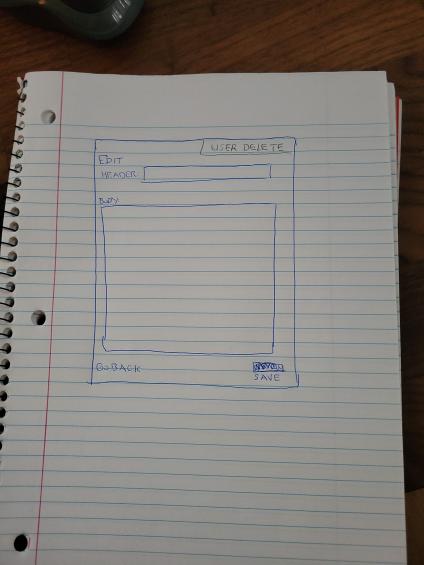 USER DELETE
EDIT
HEADER
BODY
GO BACK
SAVE